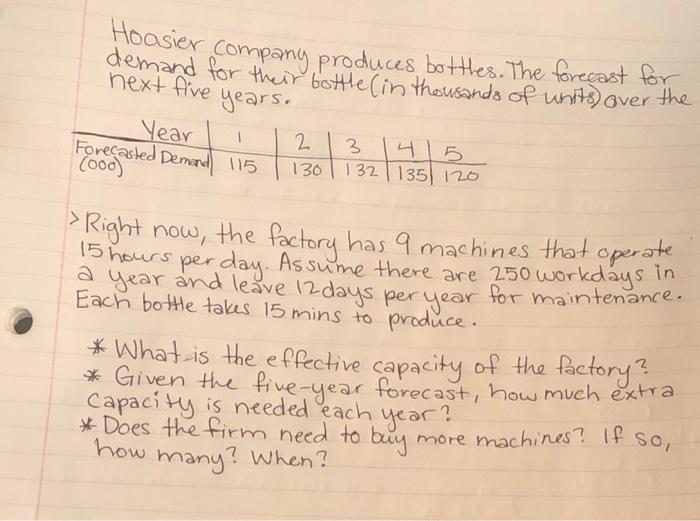 Hoosier company produces bottles. The forecast for
demand for their bottle (in thousands of units) over the
next five years.
Year 1 2 3 4 5
Forecasted Demand 115 130 132 135 120
(000)
> Right now, the factory has 9 machines that operate
15 hours per day. Assume there are 250 workdays in
a year and leave 12 days per year for maintenance.
Each bottle takes 15 mins to produce.
* What is the effective capacity of the factory?
* Given the five-year forecast, how much extra
capacity is needed each year?
* Does the firm need to buy more machines? If so,
how many? When?